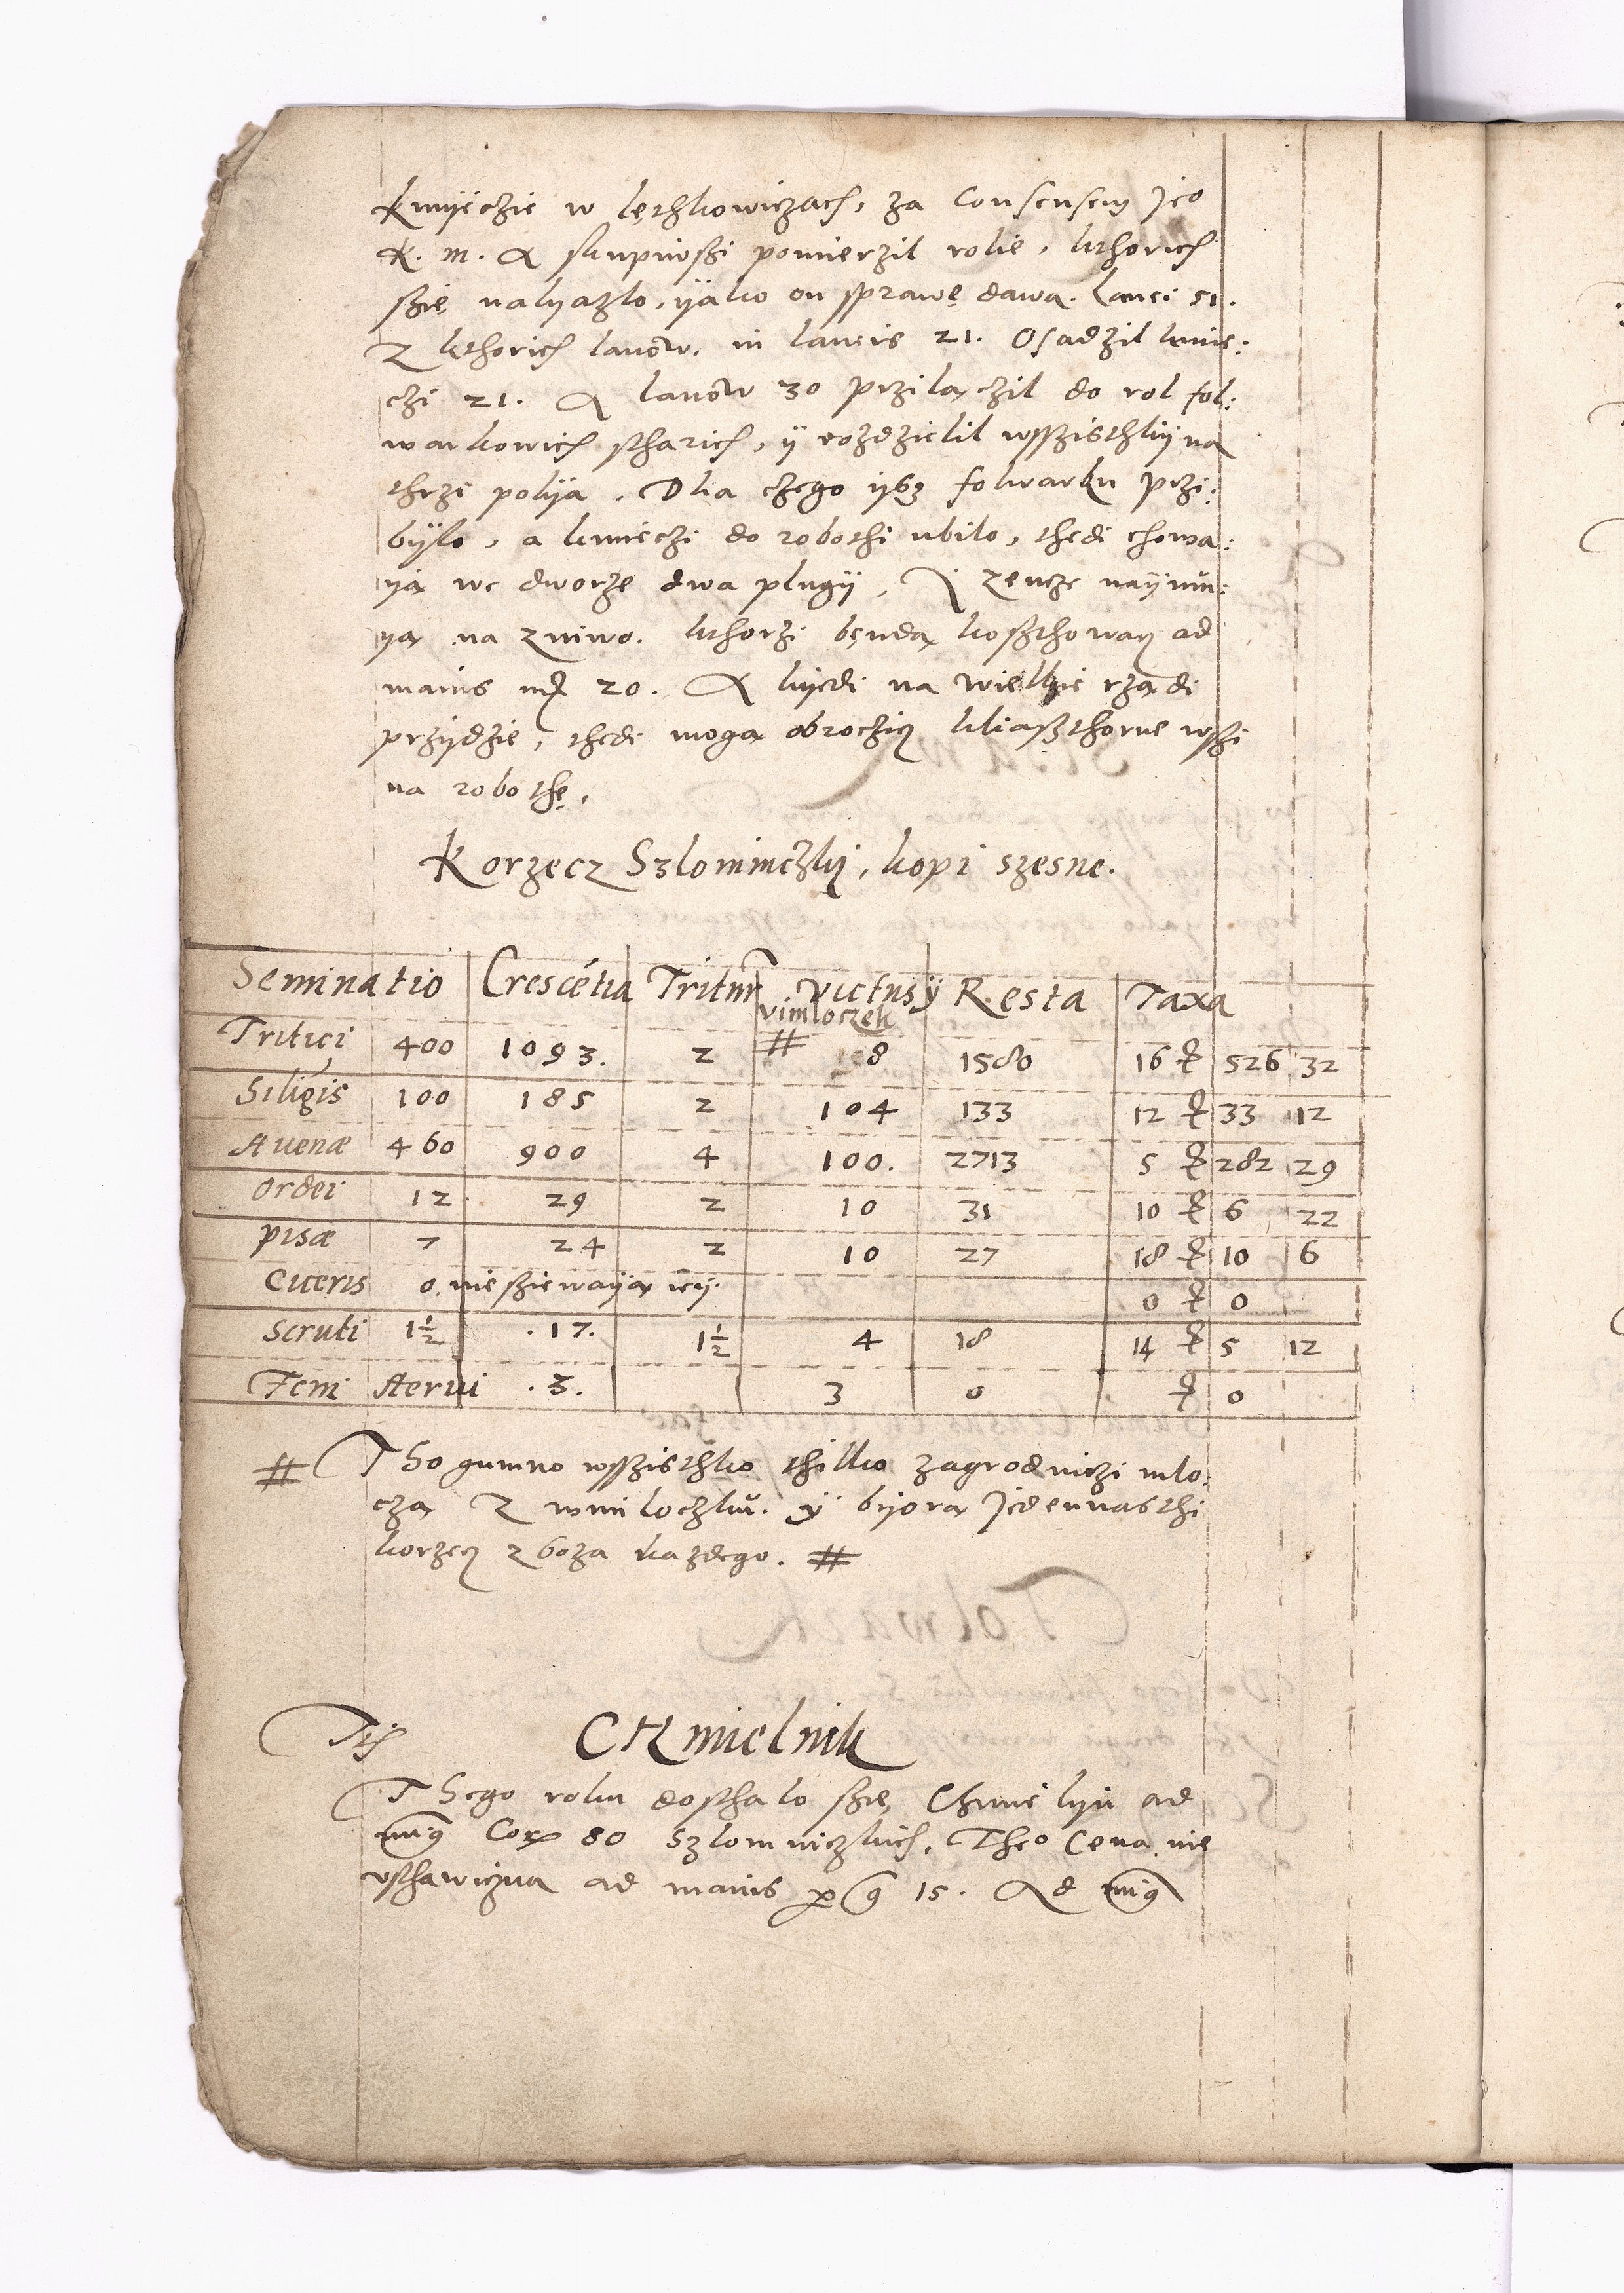 Kmyeczie w lęthkowiczach, za Consensem Jeo
K. M. A skupiwszi pomierzil rolie, kthorich
szię nalyazlo, yako on sprawę dawa. Lanei 51.
Z kthorich lanow, in laneis 21. Osadzil kmie:
czi 21. A lanow 30 przilaczil do rol fol:
warkowich starich, y rozdzielil wsszisthky na
thrzi polya. Dlia czego folwarku przi:
bylo, a kmieczi do robothi ubilo, thedi chowa:
ya we dworze dwa plugy, Y zencze nayimu:
ya na zniwo. kthorzi będa koszthowacz ad
mains 20. A kiedi na wielkie rządi
przydzie, thedi moga obroczicz kliaszthorne wszi
na robothę.
Korzecz Szlomniczky, kopi szesne.
Seminatio Crescētia Tritur victus y vimloczek Resta Taxa
Tritici 400 1093. 2 # 8 1580 16 526 32
Siligis 100 185 2 104 133 12 33 12
Auenæ 460 900 4 100. 2713 5 282 29
Ordei 12 29 2 10 31 10 6 22
Pisæ 7 24 2 10 27 18 10 6
Ciceris 0. nie sziewaya iey. 0 0
Scruti 1½ .17. 1½ 4 18 14 5 12
Feni Aerui .3. 3 0 0
# Tho gumno wsszisthko thilko zagrodniczi mlo:
cza Z wimloczku. y byora Jedennasthi
korzecz zboza kazdego. #
CHmielnik
Thego roku dosthalo szię Chmielyu ad
Cor 80 Szlomniczkich. Theo Cena nie
usthawiczna ad mains 15. Ad